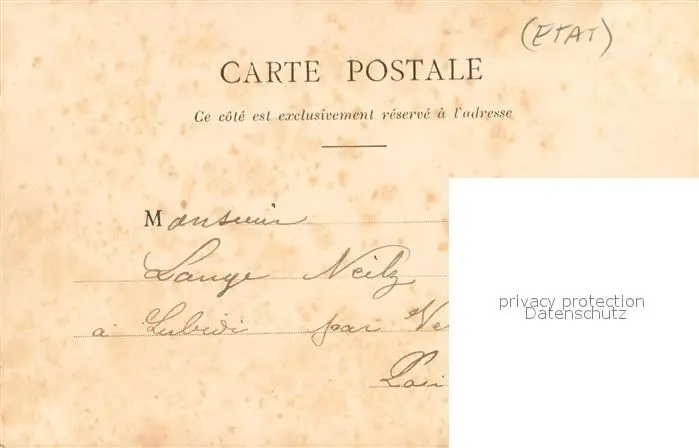 (ETAT)
CARTE POSTALE
Ce côté est exclusivement réservé à l'adresse
Monsieur
Lange
à par
privacy protection
Datenschutz